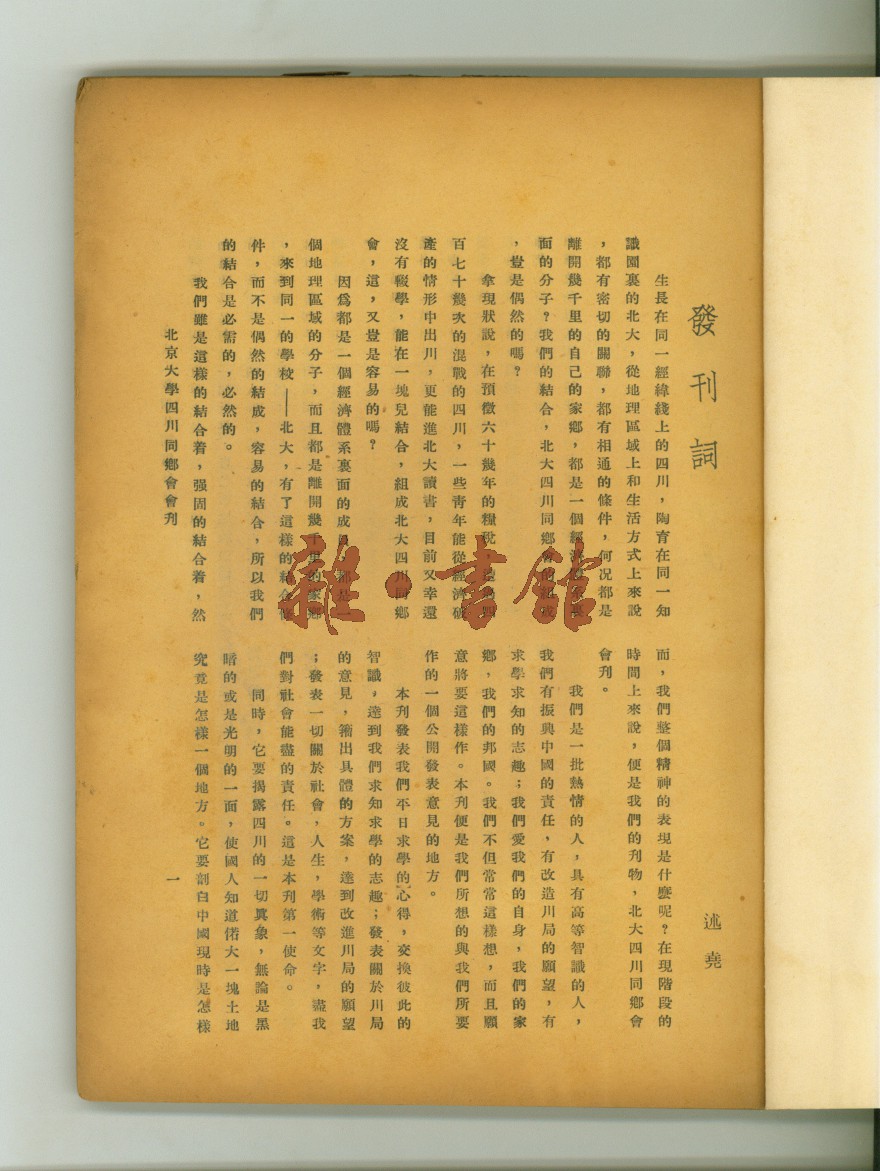 發刊詞
述堯
生長在同一經緯綫上的四川，陶育在同一知
識園裏的北大，從地理區域上和生活方式上來說
，都有密切的關聯，都有相通的條件，何况都是
離開幾千里的自己的家鄉，都是一個經濟
面的分子？我們的結合，北大四川同鄉會的組成
，豈是偶然的嗎？
拿現狀說，在預徵六十幾年的糧稅，四
百七十幾次的混戰的四川，一些靑年能從經濟破
產的情形中出川，更能進北大讀書，目前又幸還
沒有輟學，能在一塊兒結合，組成北大四川同鄉
會，這，又豈是容易的嗎？
因爲都是一個經濟體系裏面的成員，都是一
個地理區域的分子，而且都是離開幾千里的家鄉
，來到同一的學校——北大，有了這樣的結合條
件，而不是偶然的結成，容易的結合，所以我們
的結合是必需的，必然的。
我們雖是這樣的結合着，强固的結合着，然
而，我們整個精神的表現是什麼呢？在現階段的
時間上來說，便是我們的刋物，北大四川同鄉會
會刋。
我們是一批熱情的人，具有高等智識的人，
我們有振興中國的責任，有改造川局的願望，有
求學求知的志趣；我們愛我們的自身，我們的家
鄉，我們的邦國。我們不但常常這樣想，而且願
意將要這樣作。本刋便是我們所想的與我們所要
作的一個公開發表意見的地方。
本刋發表我們平日求學的心得，交換彼此的
智識，達到我們求知求學的志趣；發表關於川局
的意見，籌出具體的方案，達到改進川局的願望
；發表一切關於社會，人生，學術等文字，盡我
們對社會能盡的責任。這是本刋第一使命。
同時，它要揭露四川的一切眞象，無論是黑
暗的或是光明的一面，使國人知道偌大一塊土地
究竟是怎樣一個地方。它要剖白中國現時是怎樣
北京大學四川同鄉會會刋
一
雜·書館